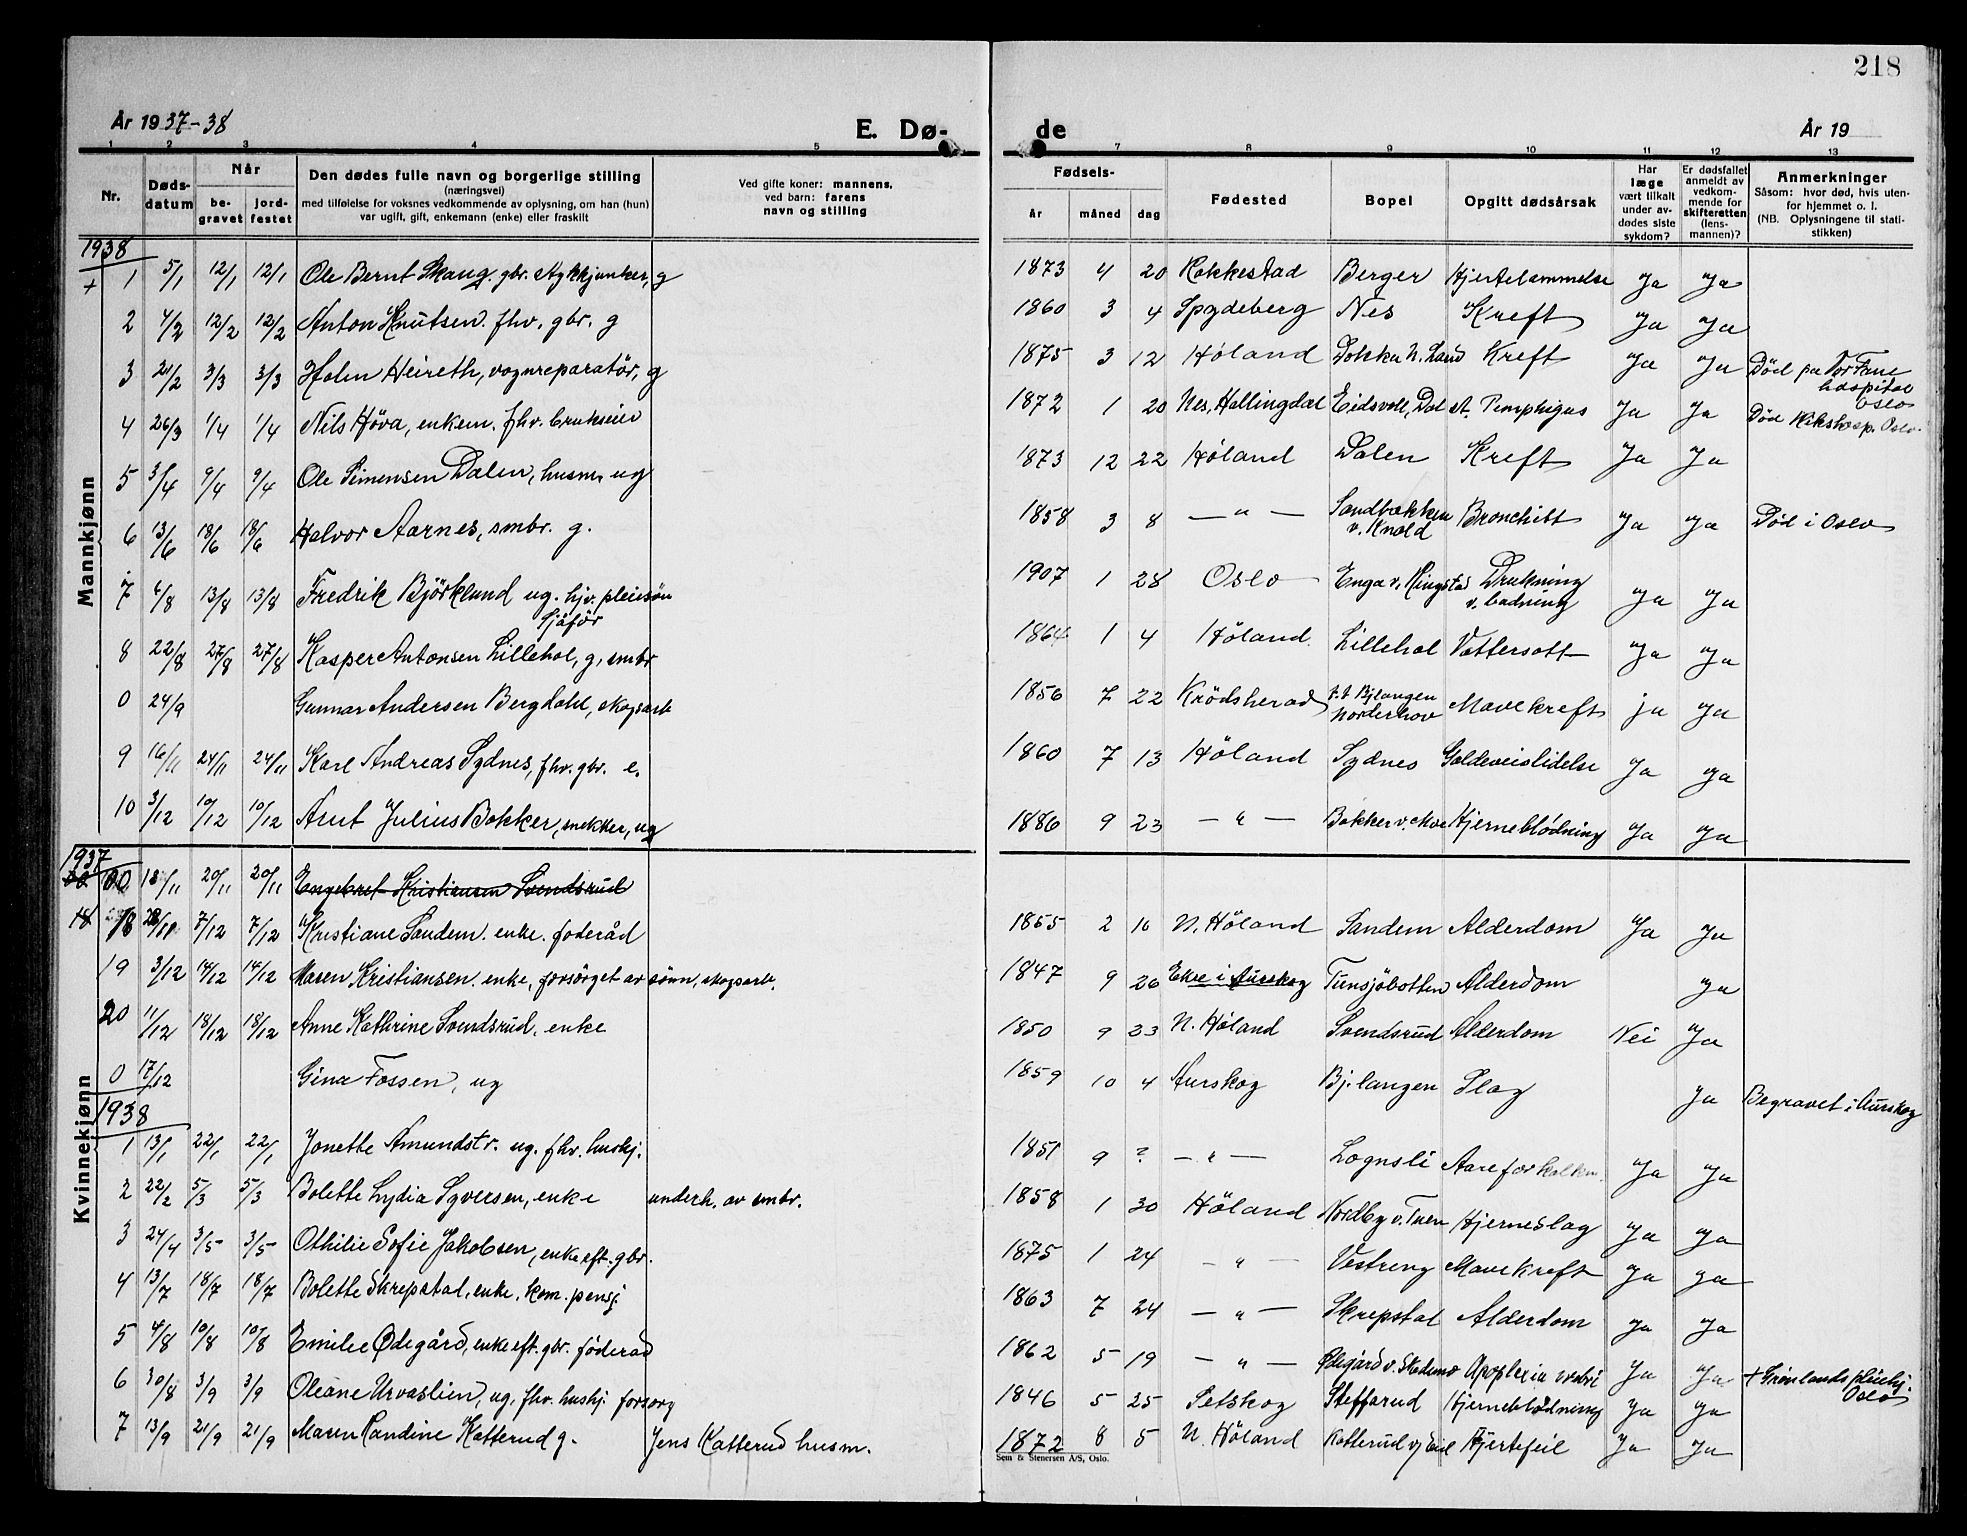 218
År 1937-38 E. Dø- de År 19
1 2 3 4 5 7 8 9 10 11 12 13
Nr. Døds-datum Når be-gravet jord-festet Den dødes fulle navn og borgerlige stilling (næringsvei) med tilføielse for voksnes vedkommende av oplysning, om han (hun) var ugift, gift, enkemann (enke) eller fraskilt Ved gifte koner: mannens, ved barn: farens navn og stilling Fødsels- år måned dag Fødested Bopel Opgitt dødsårsak Har læge vært tilkalt under av-dødes siste sykdom? Er dødsfallet anmeldt av vedkom-mende for skifteretten (lens-mannen)? Anmerkninger Såsom: hvor død, hvis uten-for hjemmet o. l. (NB. Oplysningene til stati-stikken)
Mannkjønn
1938
+ 1 5/1 12/1 12/1 Ole Bernt Skaug. gbr. stykkjunker, g 1873 4 20 Rakkestad Berger Hjertelammelse Ja Ja
2 4/2 12/2 12/2 Anton Knutsen. fhv. gbr. g 1860 3 4 Spydeberg Nes Kreft Ja Ja
3 21/2 3/3 3/3 Holm Heireth, vognreparatör, g 1875 3 12 Höland Dokka N. Land Kreft Ja Ja Död på Vor Frue hospital Oslo
4 26/3 1/4 1/4 Nils Höva, enkem. fhv. brukseier 1872 1 20 Nes, Hallingdal Eidsvoll, Dal st. Pemphigus Ja Ja Död Rikshosp. Oslo.
5 3/4 9/4 9/4 Ole Simensen Dalen, husm. ug 1873 12 22 Höland Dalen Kreft Ja Ja
6 13/6 18/6 18/6 Halvor Aarnes, smbr. g. 1858 3 8 — " — Sandbækken v. Knold Bronchitt Ja Ja Död i Oslo
7 4/8 13/8 13/8 Fredrik Björklund ug. hjv. pleiesön Sjåför 1907 1 28 Oslo Enga v. Ringstad Drukning v. badning Ja Ja
8 22/8 27/8 27/8 Kasper Antonsen Lillehol, g, smbr 1864 1 4 Höland Lillehol Vattersott Ja Ja
0 24/9 Gunnar Andersen Bergdahl, skogsarb 1856 7 22 Krödsherad p.t Bjlangen Norderhov Mavekreft ja Ja
9 16/11 24/11 24/11 Karl Andreas Sydnes, fhv. gbr. e. 1860 7 13 Höland Sydnes Galdeveislidelse Ja Ja
10 3/12 10/12 10/12 Arnt Julius Bakker, snekker, ug 1886 9 23 — " — Bakker v. Moe Hjerneblödning Ja Ja
Kvinnekjønn
1937
00 00 13/11 20/11 20/11 Engebret Kristiansen Svendsrud
18 18 28/11 7/12 7/12 Kristiane Sandem. enke. foderåd 1855 2 16 N. Höland Sandem Alderdom Ja Ja
19 3/12 14/12 14/12 Maren Kristiansen. enke, forsörget av sönn, skogsarb. 1847 9 26 Ekre i Aurskog Tunsjöbotten Alderdom Ja
20 11/12 18/12 18/12 Anne Kathrine Svendsrud, enke 1850 9 23 N. Höland Svendsrud Alderdom Nei Ja
0 17/12 Gina Fossen, ug 1859 10 4 Aurskog Bj.langen Slag Ja Begravet i Aurskog
1938
1 13/1 22/1 22/1 Jonette Amundstr. ug. fhv. hushj. 1851 9 ? — " — Lognsli Aareforkalkn. Ja Ja
2 22/2 5/3 5/3 Bolette Lydia Syversen, enke underh. av smbr. 1858 1 30 Höland Nordby v. Tuen Hjerneslag Ja Ja
3 24/4 3/5 3/5 Othilie Sofie Jakobsen, enke eft. gbr. 1875 1 24 — " — Vestreng Mavekreft Ja Ja
4 13/7 18/7 18/7 Bolette Skrepstal, enke, kom. pensj. 1863 7 24 — " — Skrepstal Alderdom Ja Ja
5 4/8 10/8 10/8 Emilie Ødegård, enke eft. gbr. föderåd 1862 5 19 — " — Ødegård v. Skedsmo Apoplexia cerebri Ja Ja + Grönlands pleiehj. Oslo
6 30/8 3/9 3/9 Oleane Urvaslien, ug. fhv. hushj. forsorg 1846 5 25 Setskog Steffarud Hjerneblödning Ja Ja
7 13/9 21/9 21/9 Maren Randine Katterud g. Jens Katterud husm. 1872 8 5 N. Höland Katterud v/ Eid Hjertefeil Ja Ja
Sem & Stenersen A/S, Oslo.